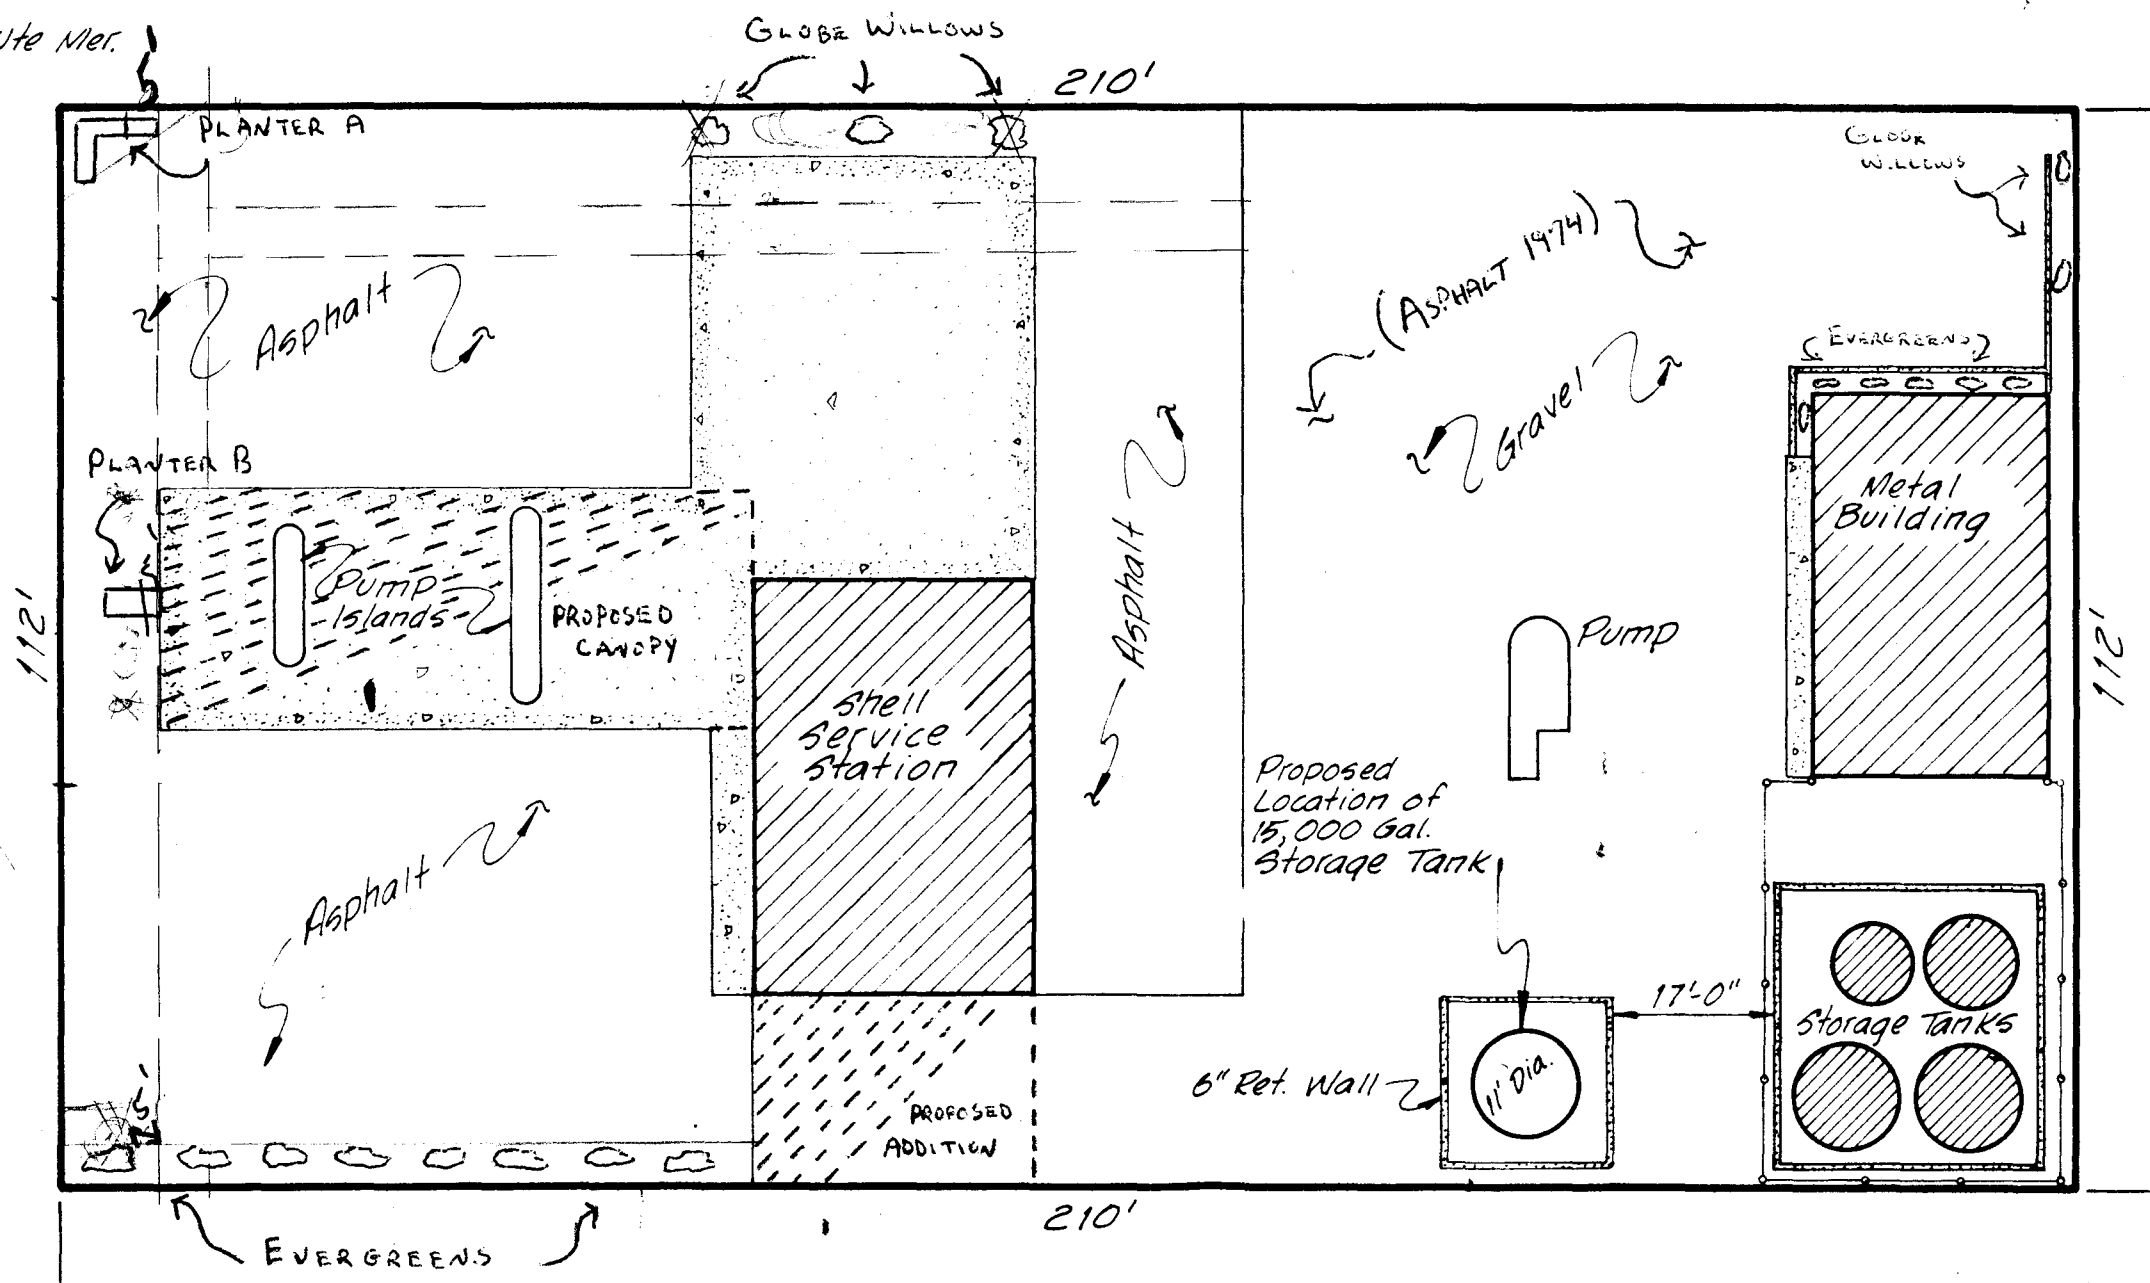 ute Mer.
GLOBE WILLOWS
210'
PLANTER A
GLOBE
WILLOWS
(ASPHALT 1974)
Asphalt
EVERGREENS
Gravel
PLANTER B
Metal
Building
Pump
Islands
PROPOSED
CANOPY
Asphalt
Pump
112'
112'
Shell
Service
Station
Proposed
Location of
15,000 Gal.
Storage Tank
Asphalt
17'-0"
Storage Tanks
6" Ret. Wall
11' Dia.
PROPOSED
ADDITION
210'
EVERGREENS